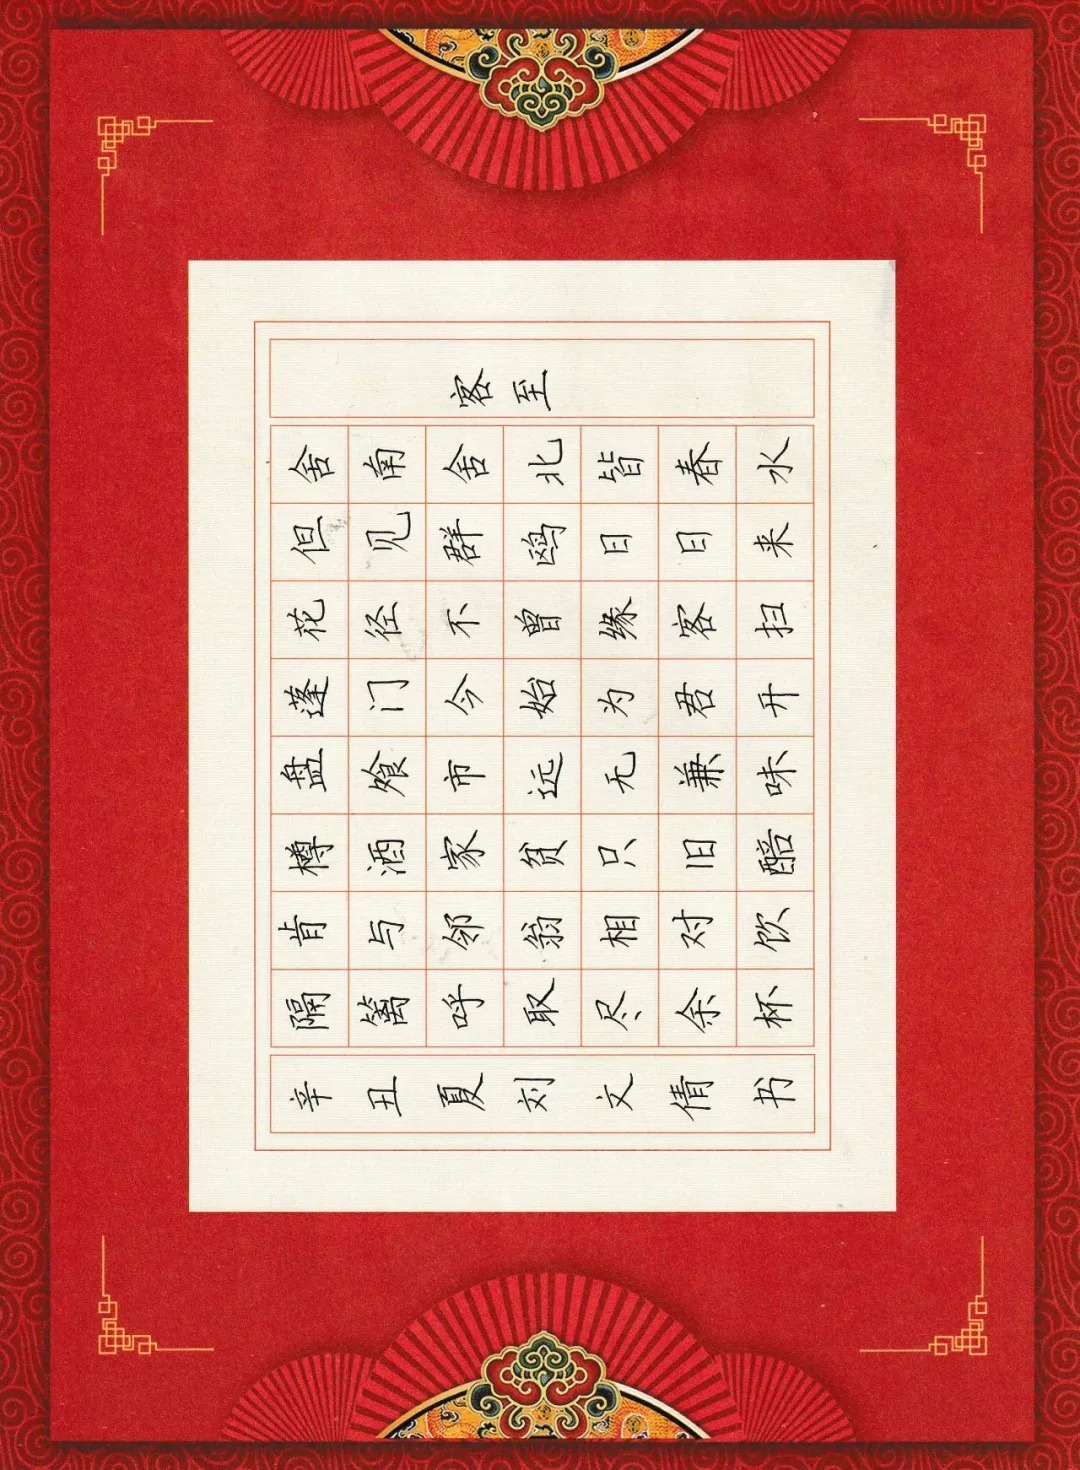 客至
舍南舍北皆春水
但见群鸥日日来
花径不曾缘客扫
蓬门今始为君开
盘飧市远无兼味
樽酒家贫只旧醅
肯与邻翁相对饮
隔篱呼取尽余杯
辛丑夏刘文倩书